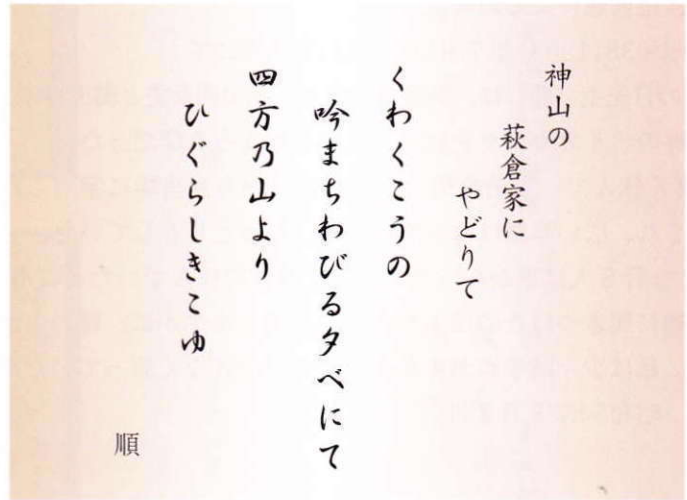 神山の
萩倉家に
やどりて
くわくこうの
吟まちわびる夕べにて
四方乃山より
ひぐらしきこゆ
順